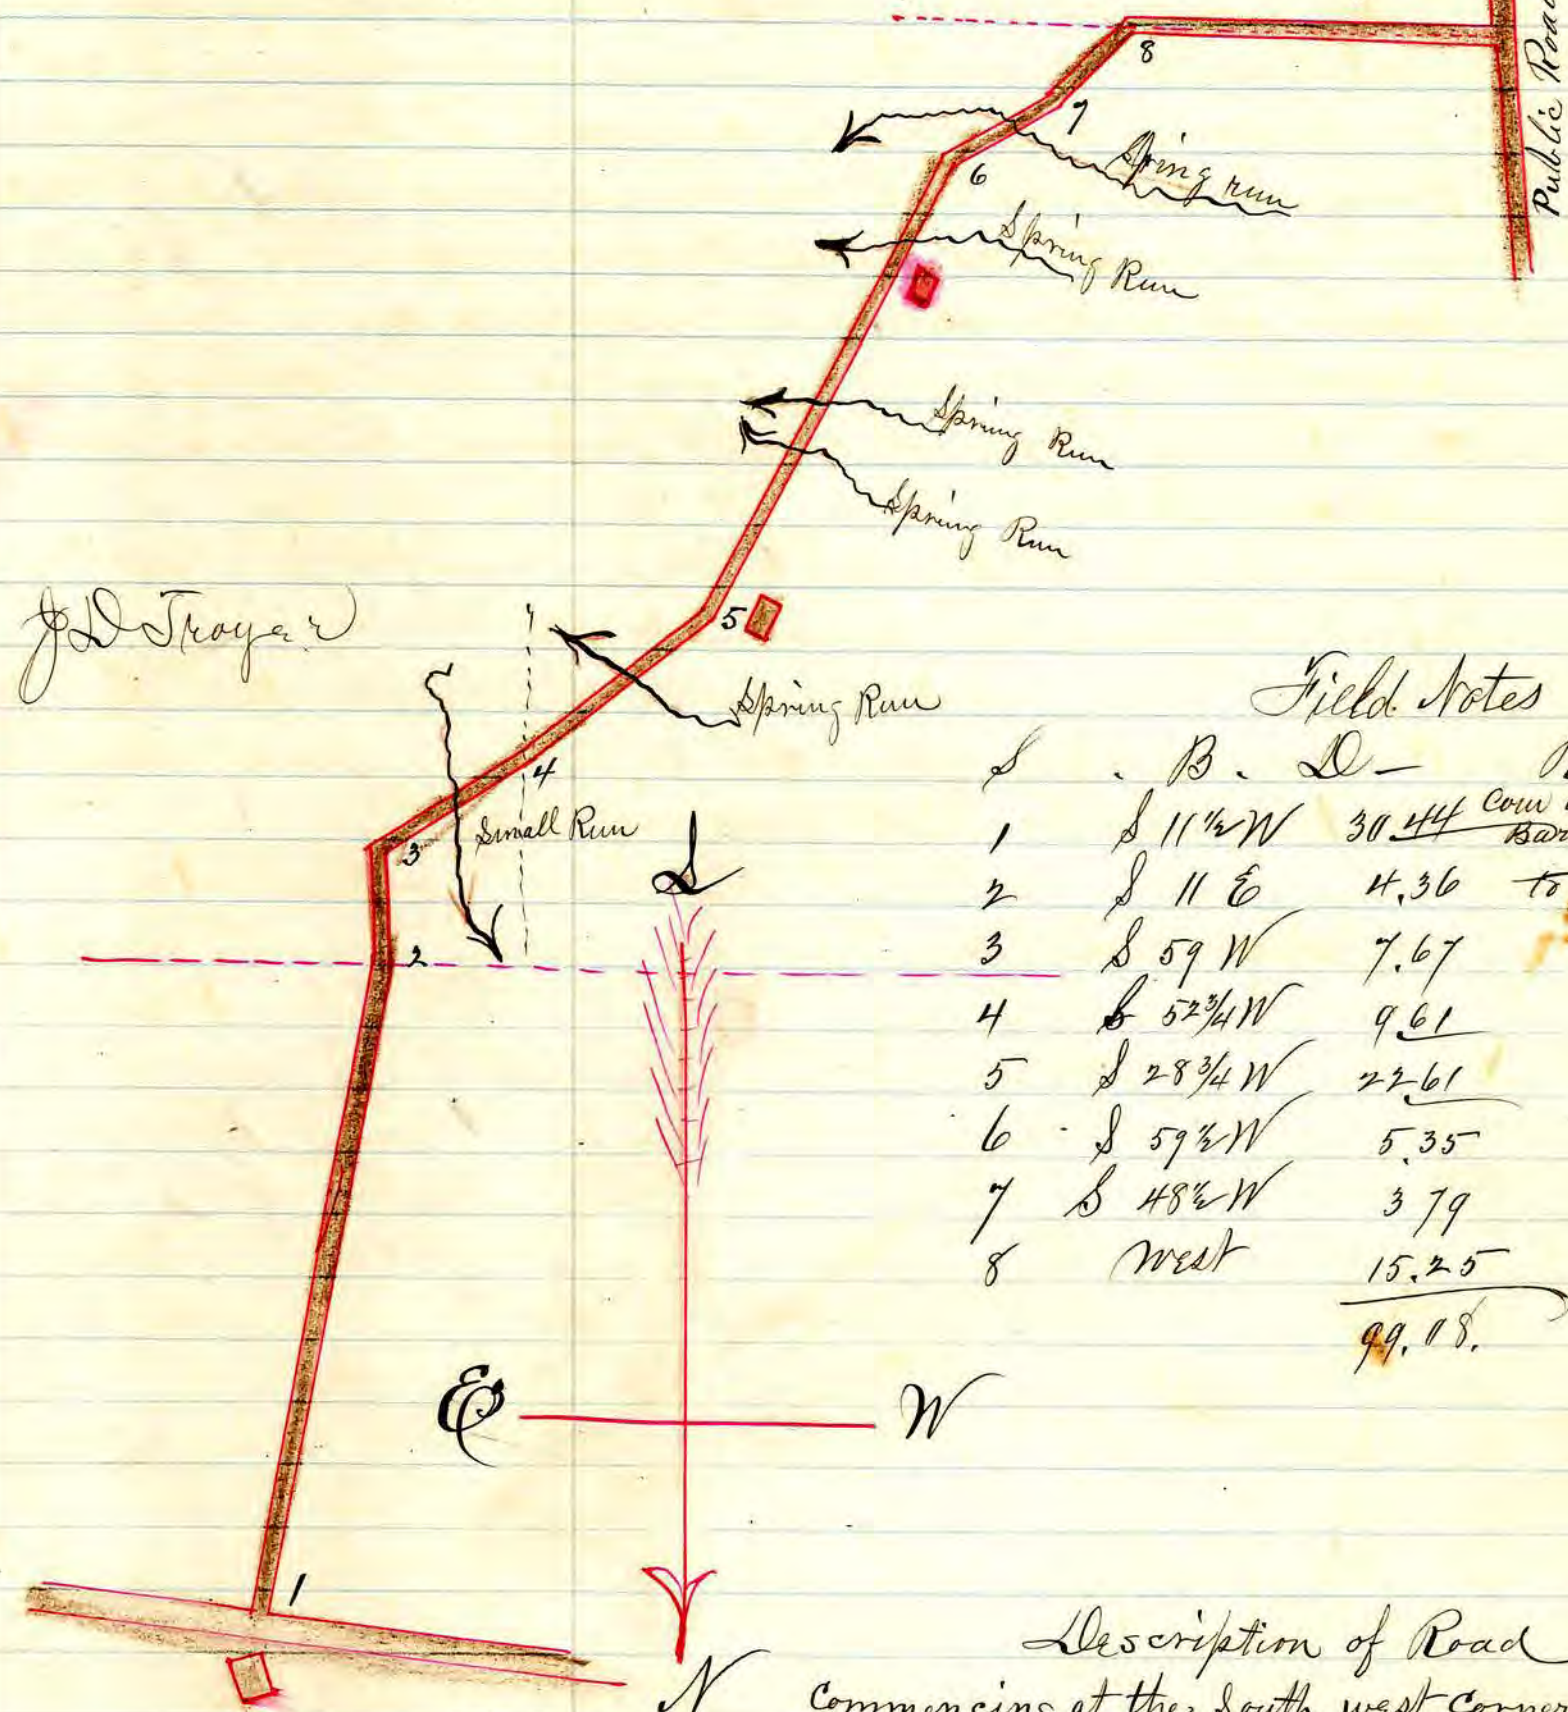 Public Road
8
7
Spring run
6
Spring Run
Spring Run
Spring Run
5
J D Troyer
Spring Run
4
Small Run
3
S
2
E W
1
N
Field Notes
S . B . D -
1 S 11 1/2 W 30.44 Com
2 S 11 E 4.36 to
3 S 59 W 7.67
4 S 52 3/4 W 9.61
5 S 28 3/4 W 22.61
6 S 59 1/2 W 5.35
7 S 48 1/2 W 3 79
8 West 15.25
99.08.
Description of Road
Commencing at the South west Corner